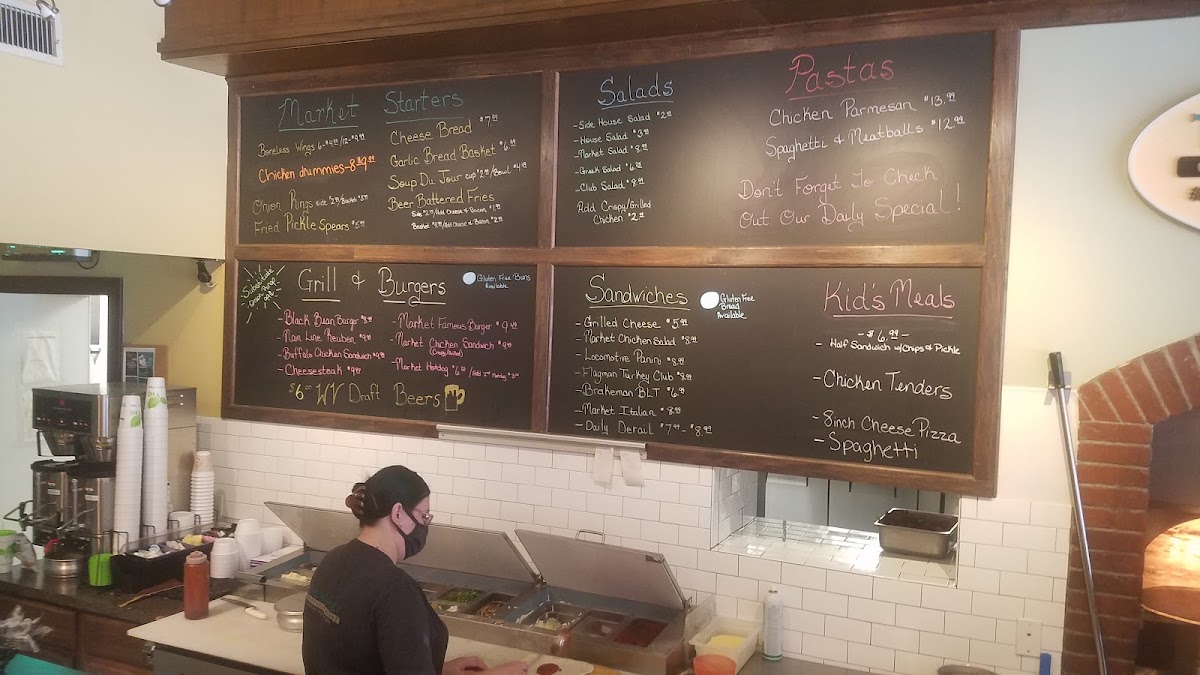 Market Starters
Boneless Wings 6-$4.99/12-$9.99
Chicken drummies-8 $9.99
Onion Rings side $2.99/Basket
Fried Pickle Spears
Cheese Bread $7.99
Garlic Bread Basket $6.99
Soup Du Jour cup $2.99/Bowl $4.99
Beer Battered Fries
Side /Add Cheese & Bacon
Basket /Add Cheese & Bacon
Salads
-Side House Salad $2.99
-House Salad $3.99
-Market Salad $8.99
-Greek Salad $6.99
-Club Salad $8.99
Add Crispy/Grilled
Chicken $2.99
Pastas
Chicken Parmesan $13.99
Spaghetti & Meatballs $12.99
Don't Forget To Check
Out Our Daily Special!
Substitute
Grill & Burgers
Gluten Free Buns
Available
-Black Bean Burger
-Main Line Reuben
-Buffalo Chicken Sandwich $9.99
-Cheesesteak $9.99
-Market Famous Burger $9.49
-Market Chicken Sandwich $9.99
-Market Hotdog
$6.00 WV Draft Beers
Sandwiches
Gluten
Free
Bread
Available
-Grilled Cheese $5.99
-Market Chicken Salad $8.99
-Locomotive Panini $8.99
-Flagman Turkey Club $8.99
-Brakeman BLT $6.99
-Market Italian $8.99
-Daily Derail $7.99-$8.99
Kid's Meals
-$6.99-
- Half Sandwich w/Chips & Pickle
-Chicken Tenders
-8inch Cheese Pizza
-Spaghetti